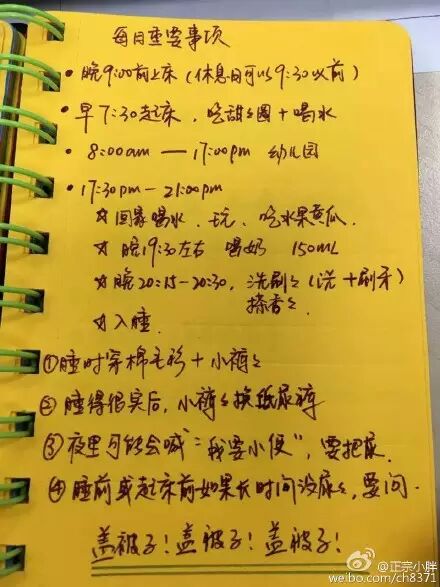 每日重要事项
• 晚9:00前上床（休息日可以9:30以前）
• 早7:30起床，吃甜甜圈+喝水
• 8:00am — 17:00pm 幼儿园
• 17:30pm — 21:00pm
☆ 回家喝水、玩、吃水果黄瓜.
☆ 晚19:30左右 喝奶 150ML
☆ 晚20:15-20:30, 洗刷刷（洗+刷牙）
搽香香
☆ 入睡.
①睡时穿棉毛衫+小裤裤
②睡得很实后，小裤裤换纸尿裤
③夜里可能会喊“我要小便”，要把尿.
④睡前或起床前如果长时间没尿尿，要问.
盖被子！盖被子！盖被子！
@正宗小胖
weibo.com/ch8371